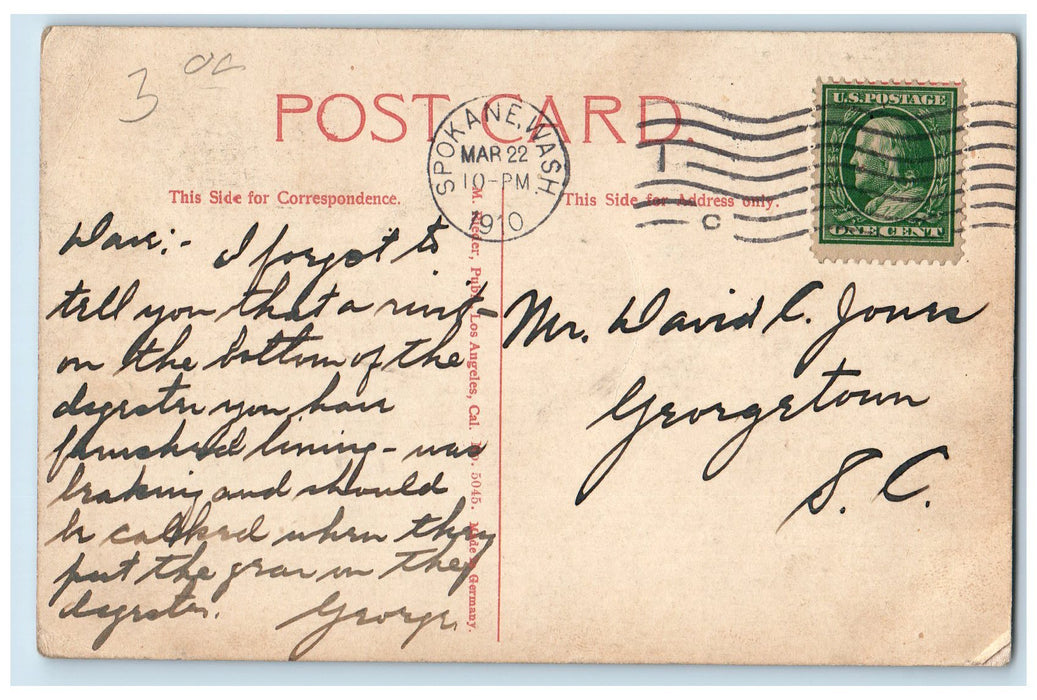 3 00
POST CARD.
SPOKANE, WASH.
MAR 22
10-PM
1910
C
U.S. POSTAGE
ONE CENT
This Side for Correspondence.
This Side for Address only.
M. Rieder, Publ., Los Angeles, Cal. No. 5045. Made in Germany.
Dave:- I forgot to
tell you that a rivit-
on the bottom of the
degester you have
furnished lining - was
leaking and should
be calked when they
put the gear on the
degester. George.
Mr. David C. Jones
Georgetown
S. C.